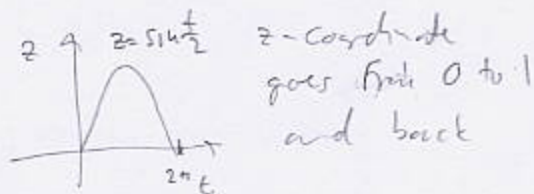 z
z = sin t/2
2π
t
z-coordinate
goes from 0 to 1
and back